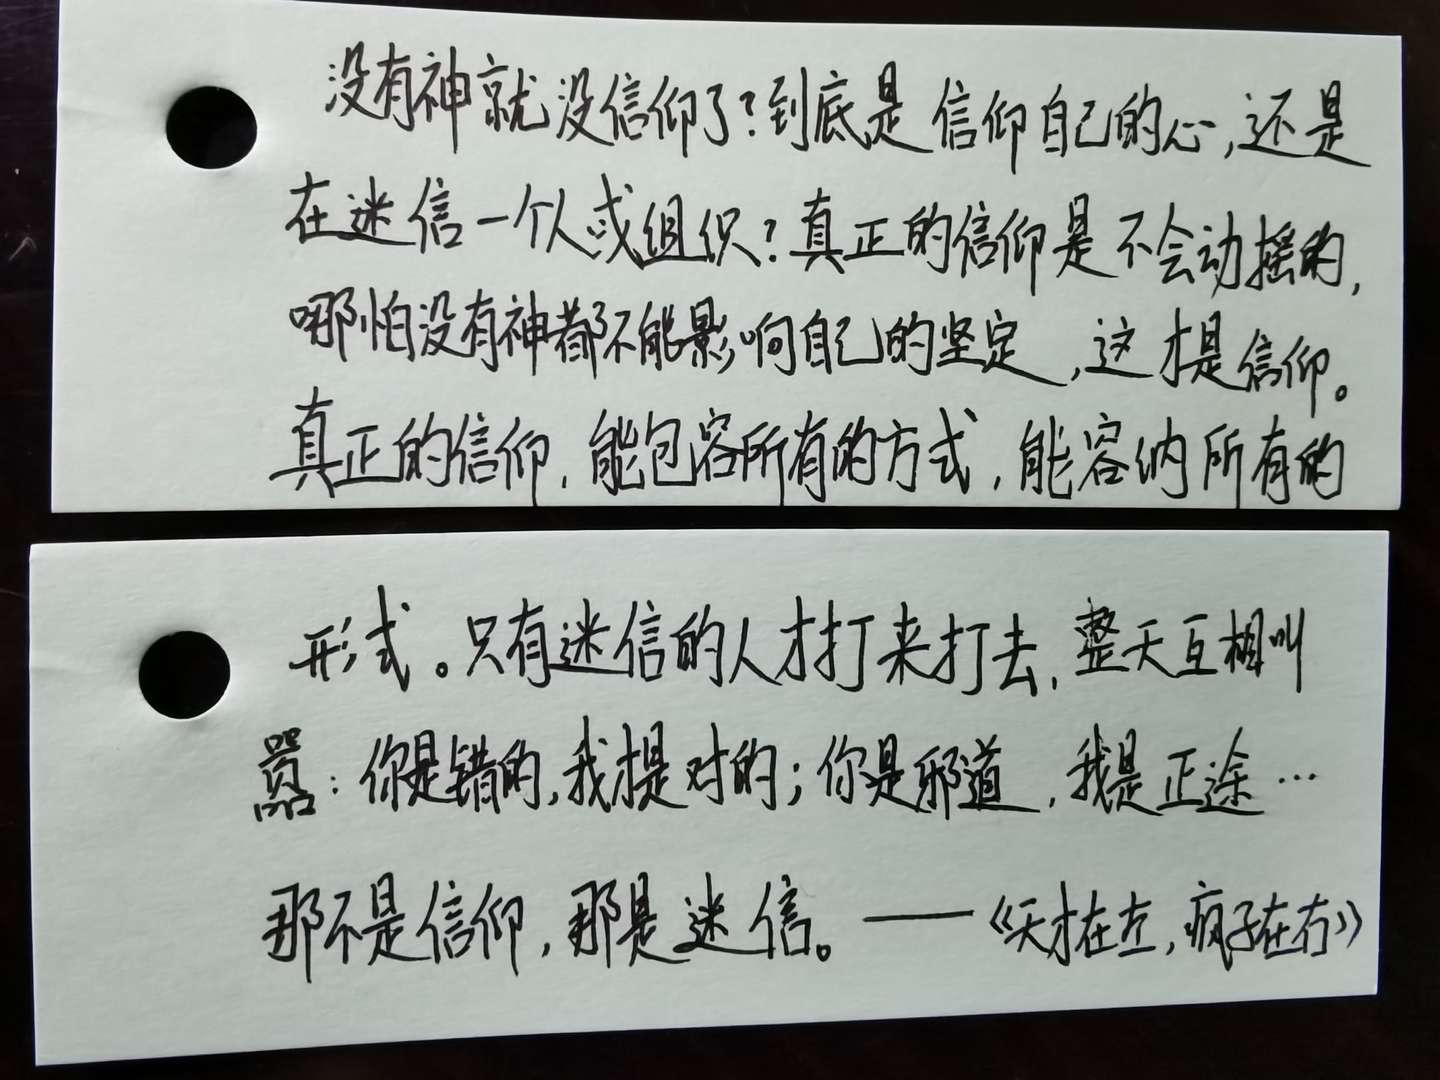 没有神就没信仰了?到底是信仰自己的心,还是
在迷信一个人或组织?真正的信仰是不会动摇的,
哪怕没有神都不能影响自己的坚定,这才是信仰。
真正的信仰,能包容所有的方式,能容纳所有的
形式。只有迷信的人才打来打去,整天互相叫
嚣:你是错的,我才是对的;你是邪道,我是正途…
那不是信仰,那是迷信。——《天才在左,疯子在右》